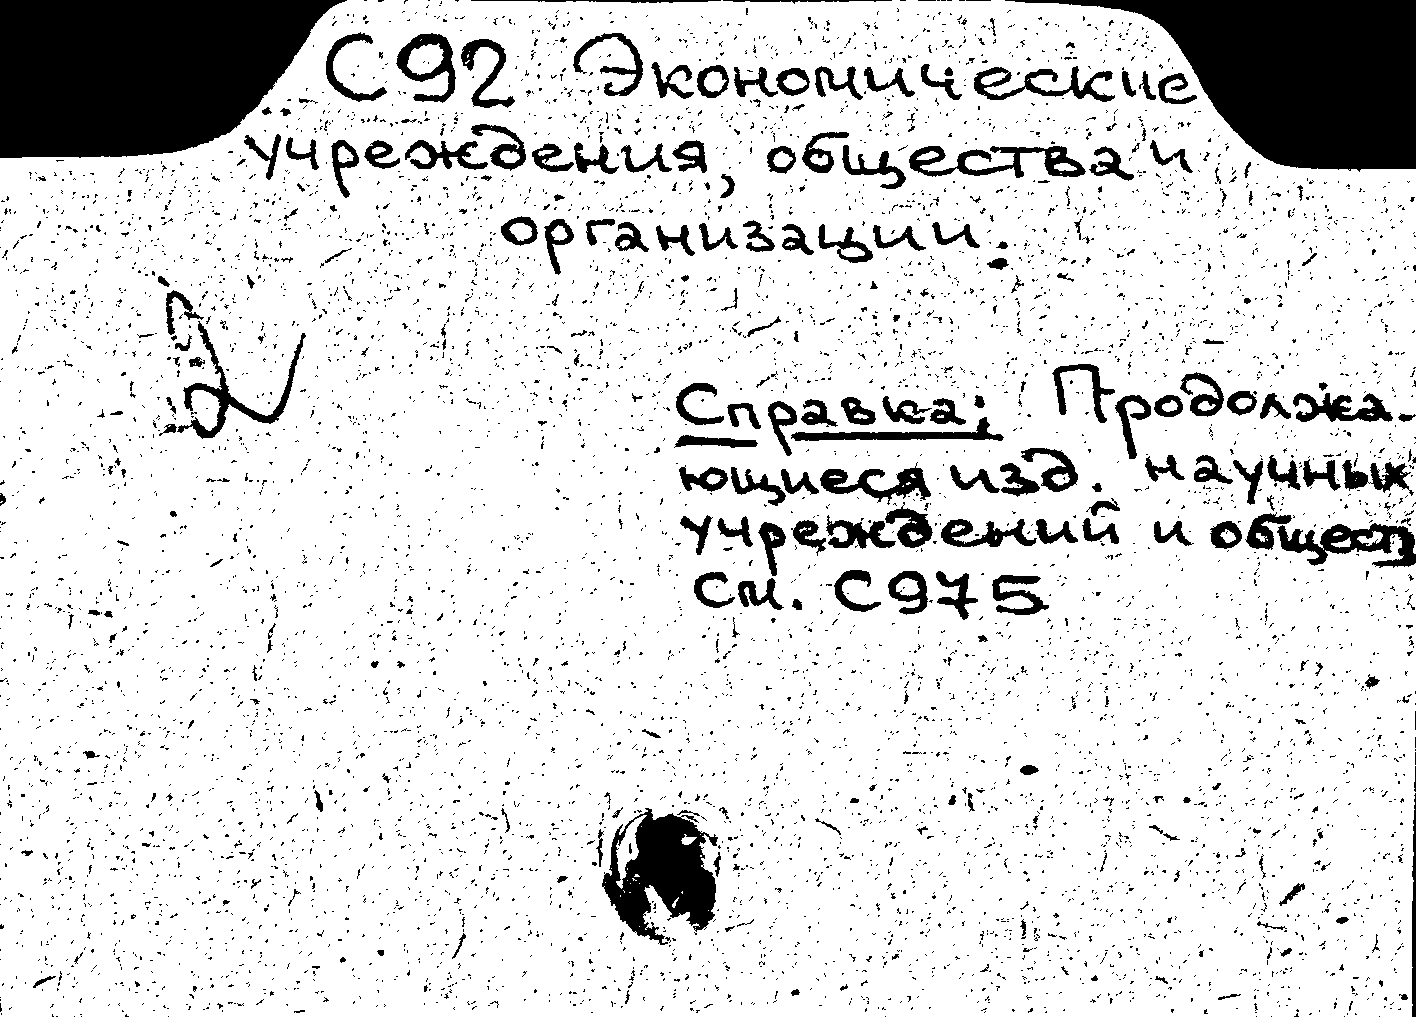 С92 Экономические
учреждения, общества и
организации.
Справка: Продолжа-
ющиеся изд. научных
учреждений и обществ
См. С975